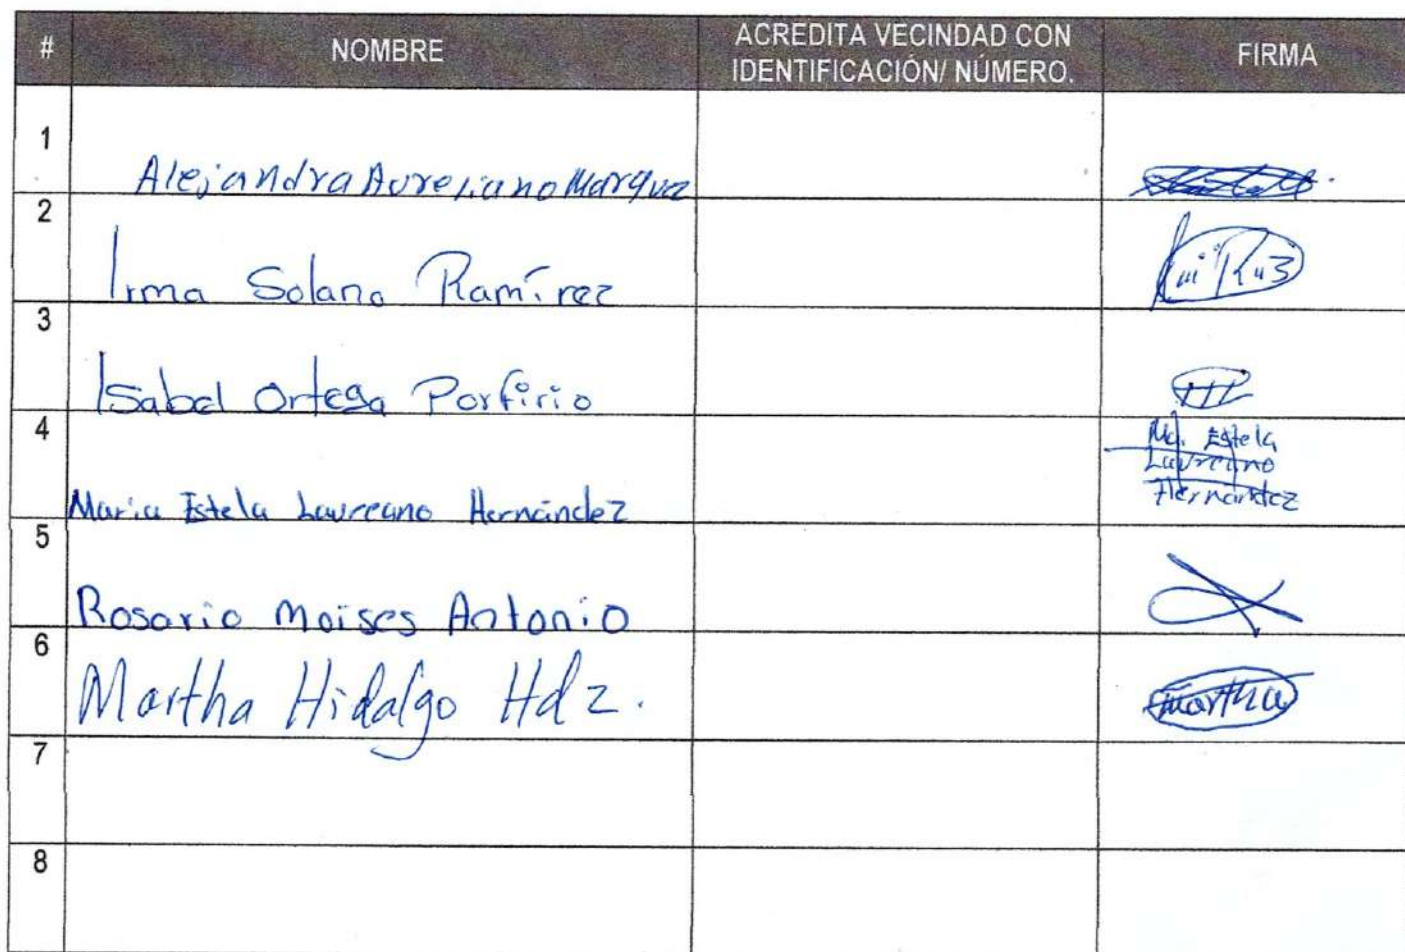 # NOMBRE ACREDITA VECINDAD CON IDENTIFICACIÓN/ NÚMERO. FIRMA
1 Alejandra Aureliano Marquez
2 Irma Solano Ramírez
3 Isabel Ortega Porfirio
4 Maria Estela Laureano Hernández Ma. Estela
Laureano
Hernández
5 Rosario Moises Antonio
6 Martha Hidalgo Hdz. martha
7
8